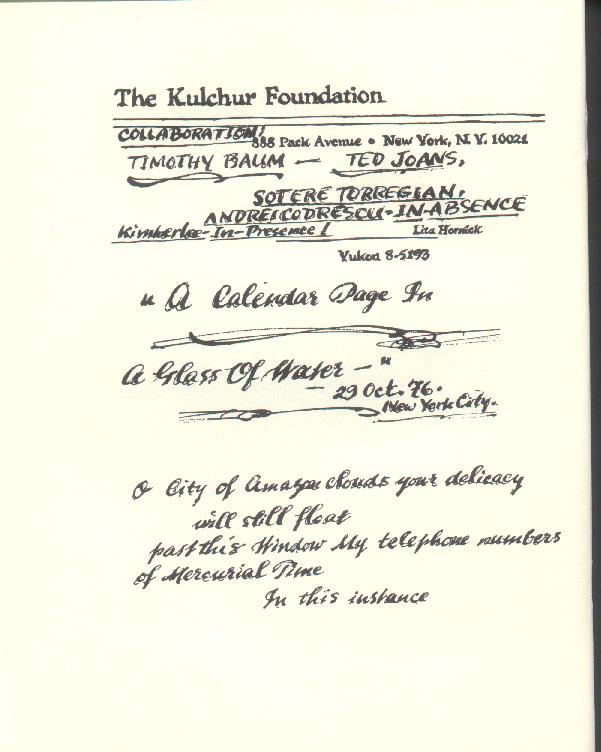 The Kulchur Foundation
COLLABORATION!
888 Park Avenue • New York, N.Y. 10021
TIMOTHY BAUM — TED JOANS,
SOTERE TORREGIAN,
ANDREI CODRESCU-IN-ABSENCE
Kimberlee-In-Presence!
Lita Hornick
Yukon 8-5193
"A Calendar Page In
A Glass Of Water —"
29 Oct. '76.
New York City.
O City of Amazon clouds your delicacy
will still float
past this Window My telephone numbers
of Mercurial Time
In this instance